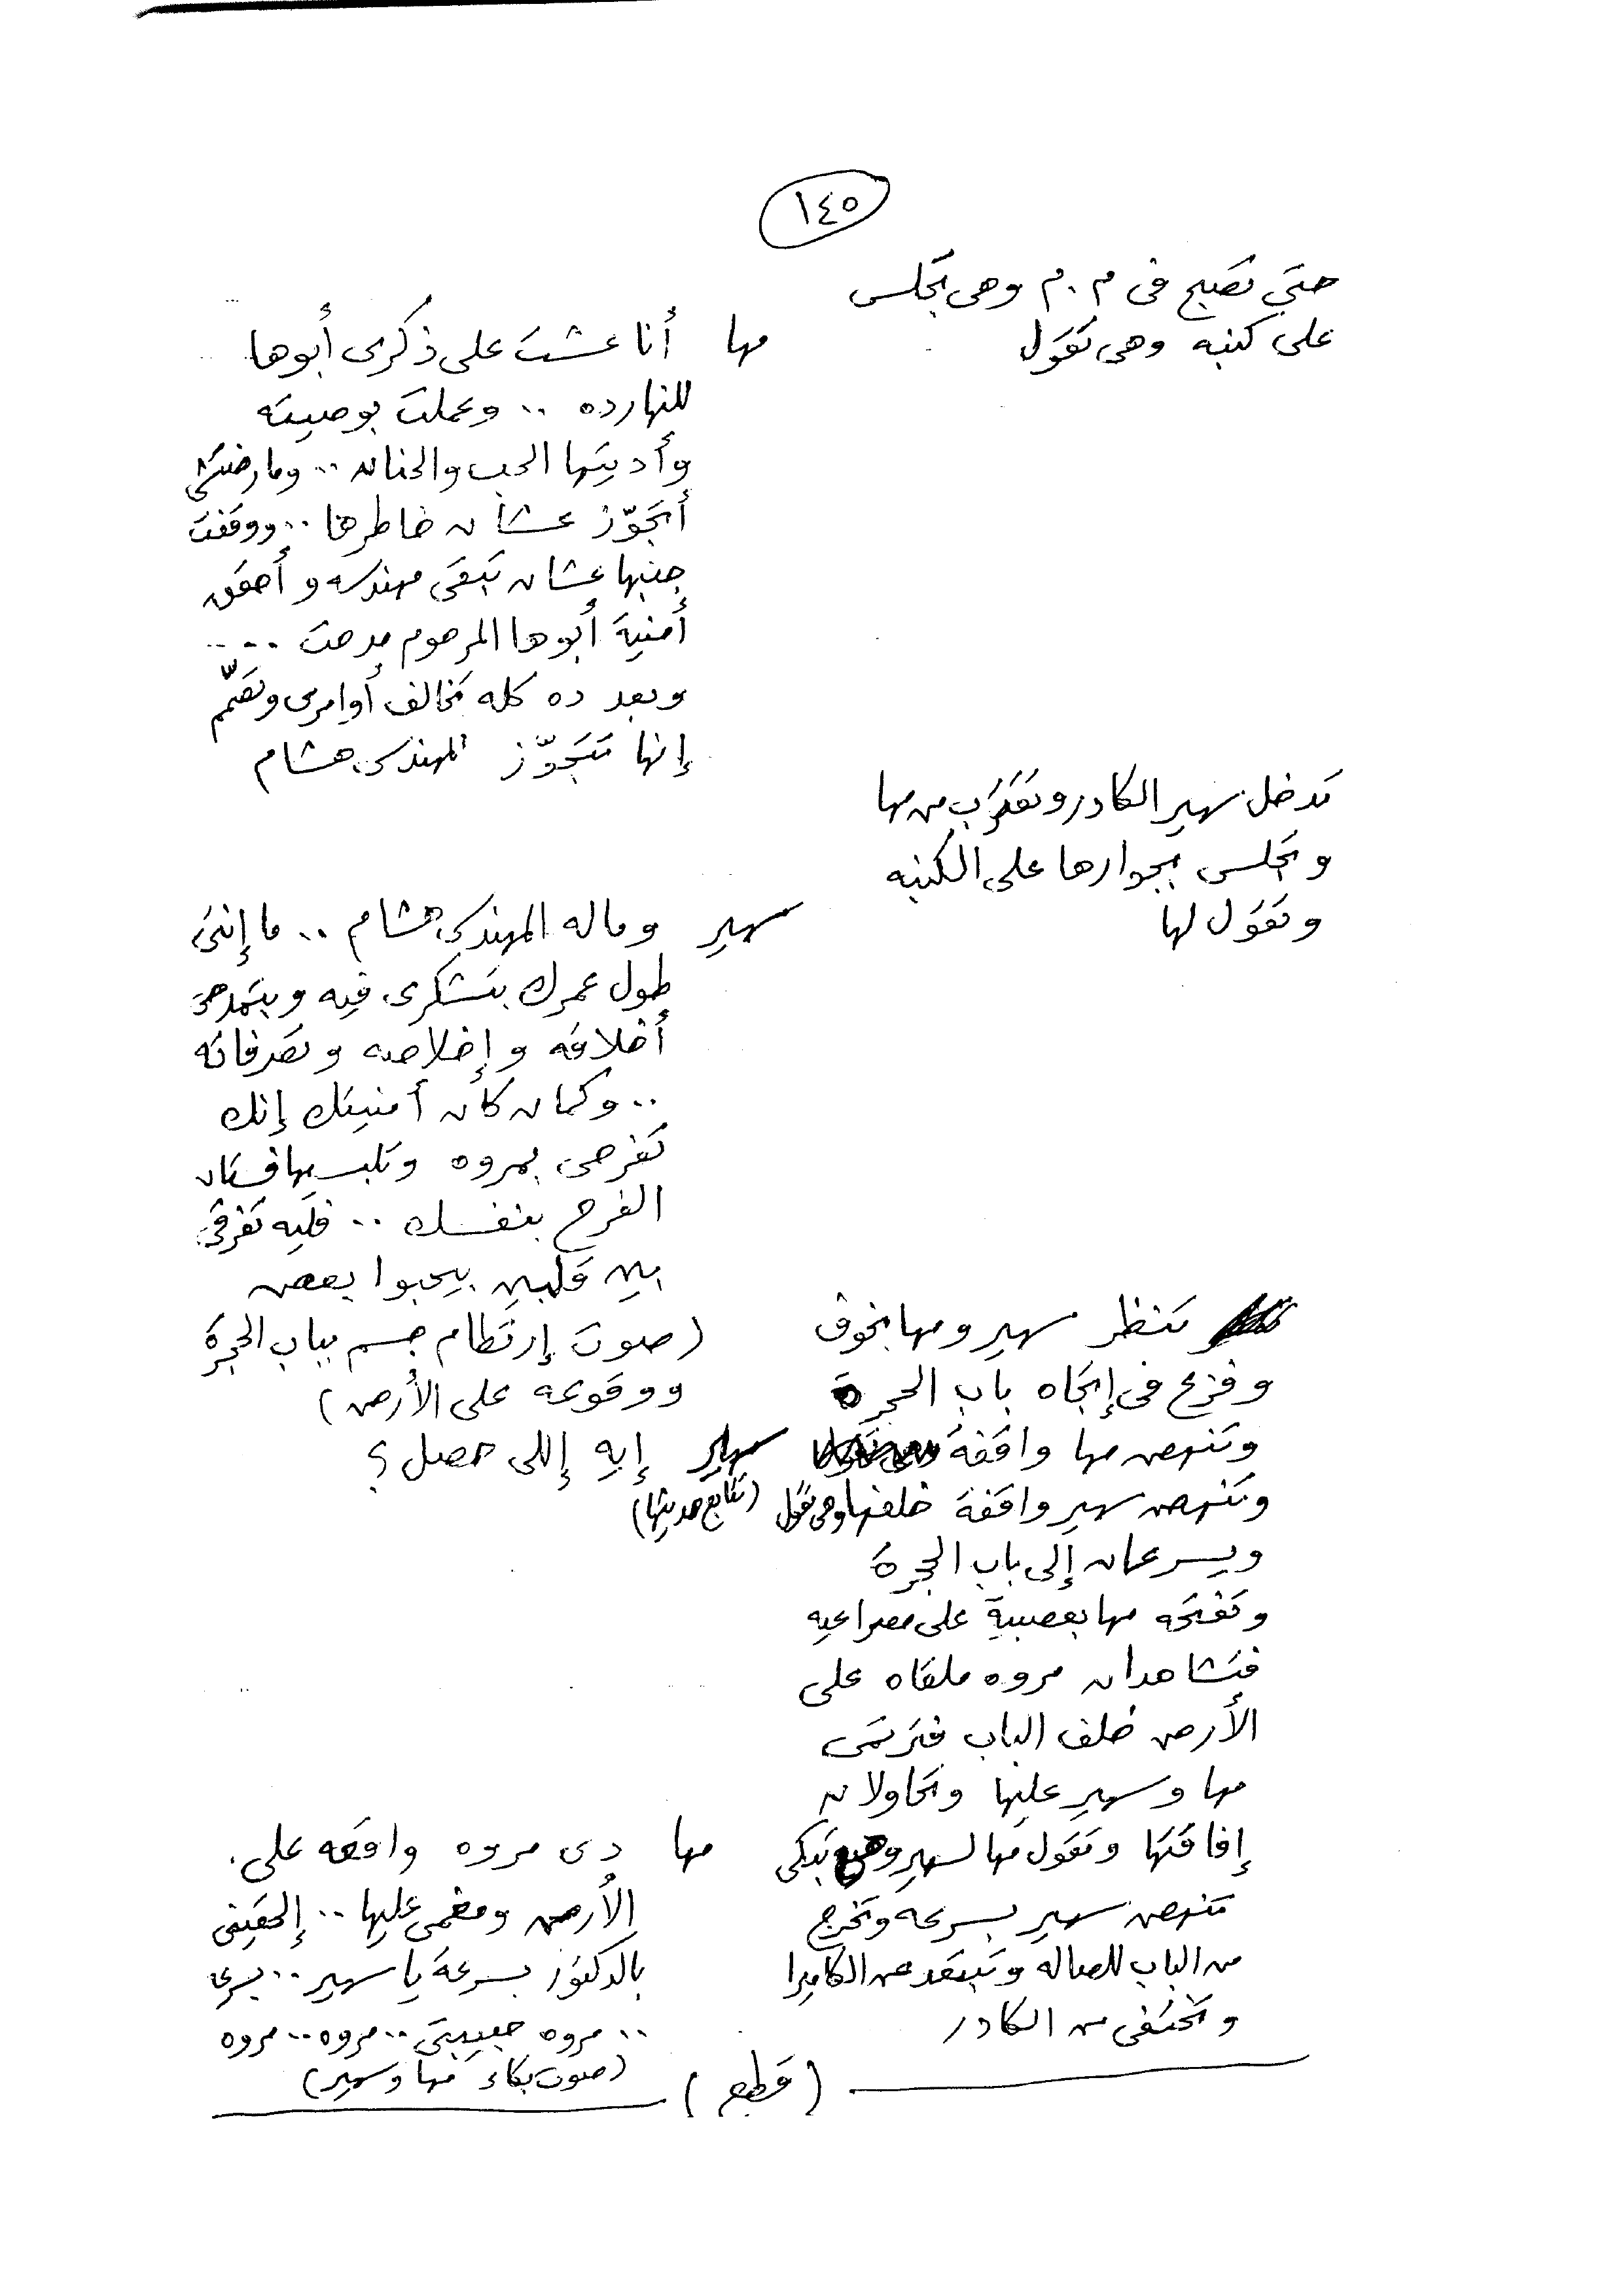 ١٤٥
حتى تصبح فى م . م وهى تجلس
على كنبه وهى تقول
مها أنا عشت على ذكرى أبوها
للنهارده .. وعملت بوصيته
وأديتها الحب والحنان .. ومارضتش
أتجوّز عشان خاطرها .. ووقفت
جنبها عشان تبقى مهندسه وأحقق
أمنية أبوها المرحوم مدحت ....
وبعد ده كله تخالف أوامرى وتصمّم
إنها تتجوّز المهندس هشام
تدخل سهير الكادر وتقترب من مها
وتجلس بجوارها على الكنبه
وتقول لها
سهير وماله المهندس هشام .. ما إنتى
طول عمرك بتشكرى فيه وبتمدحى
أخلاقه وإخلاصه وتصرفاته
.. وكمان كان أمنيتك إنك
تفرحى بمروه وتلبسيها فستان
الفرح بنفسك .. فليه تفرقى
بين قلبين بيحبوا بعض
(صوت إرتطام جسم بباب الحجرة
ووقوعه على الأرض)
تنظر سهير ومها بخوف
وفزع فى إتجاه باب الحجرة
وتنهض مها واقفة
سهير إيه إللى حصل ؟
وتنهض سهير واقفة خلفها وهى تقول (تتابع حديثها)
ويسرعان إلى باب الحجرة
وتفتحه مها بعصبية على مصراعيه
فتشاهدان مروه ملقاه على
الأرض خلف الباب فترتمى
مها وسهير عليها وتحاولان
إفاقتها وتقول مها لسهير وهى تبكى
مها دى مروه واقعه على
الأرض ومغمى عليها .. إلحقينى
بالدكتور بسرعة يا سهير .. بسرعه
.. مروه حبيبتى .. مروه .. مروه
(صوت بكاء مها وسهير)
تنهض سهير بسرعه وتخرج
من الباب للصاله وتبتعد عن الكاميرا
وتختفى من الكادر
(قطع)